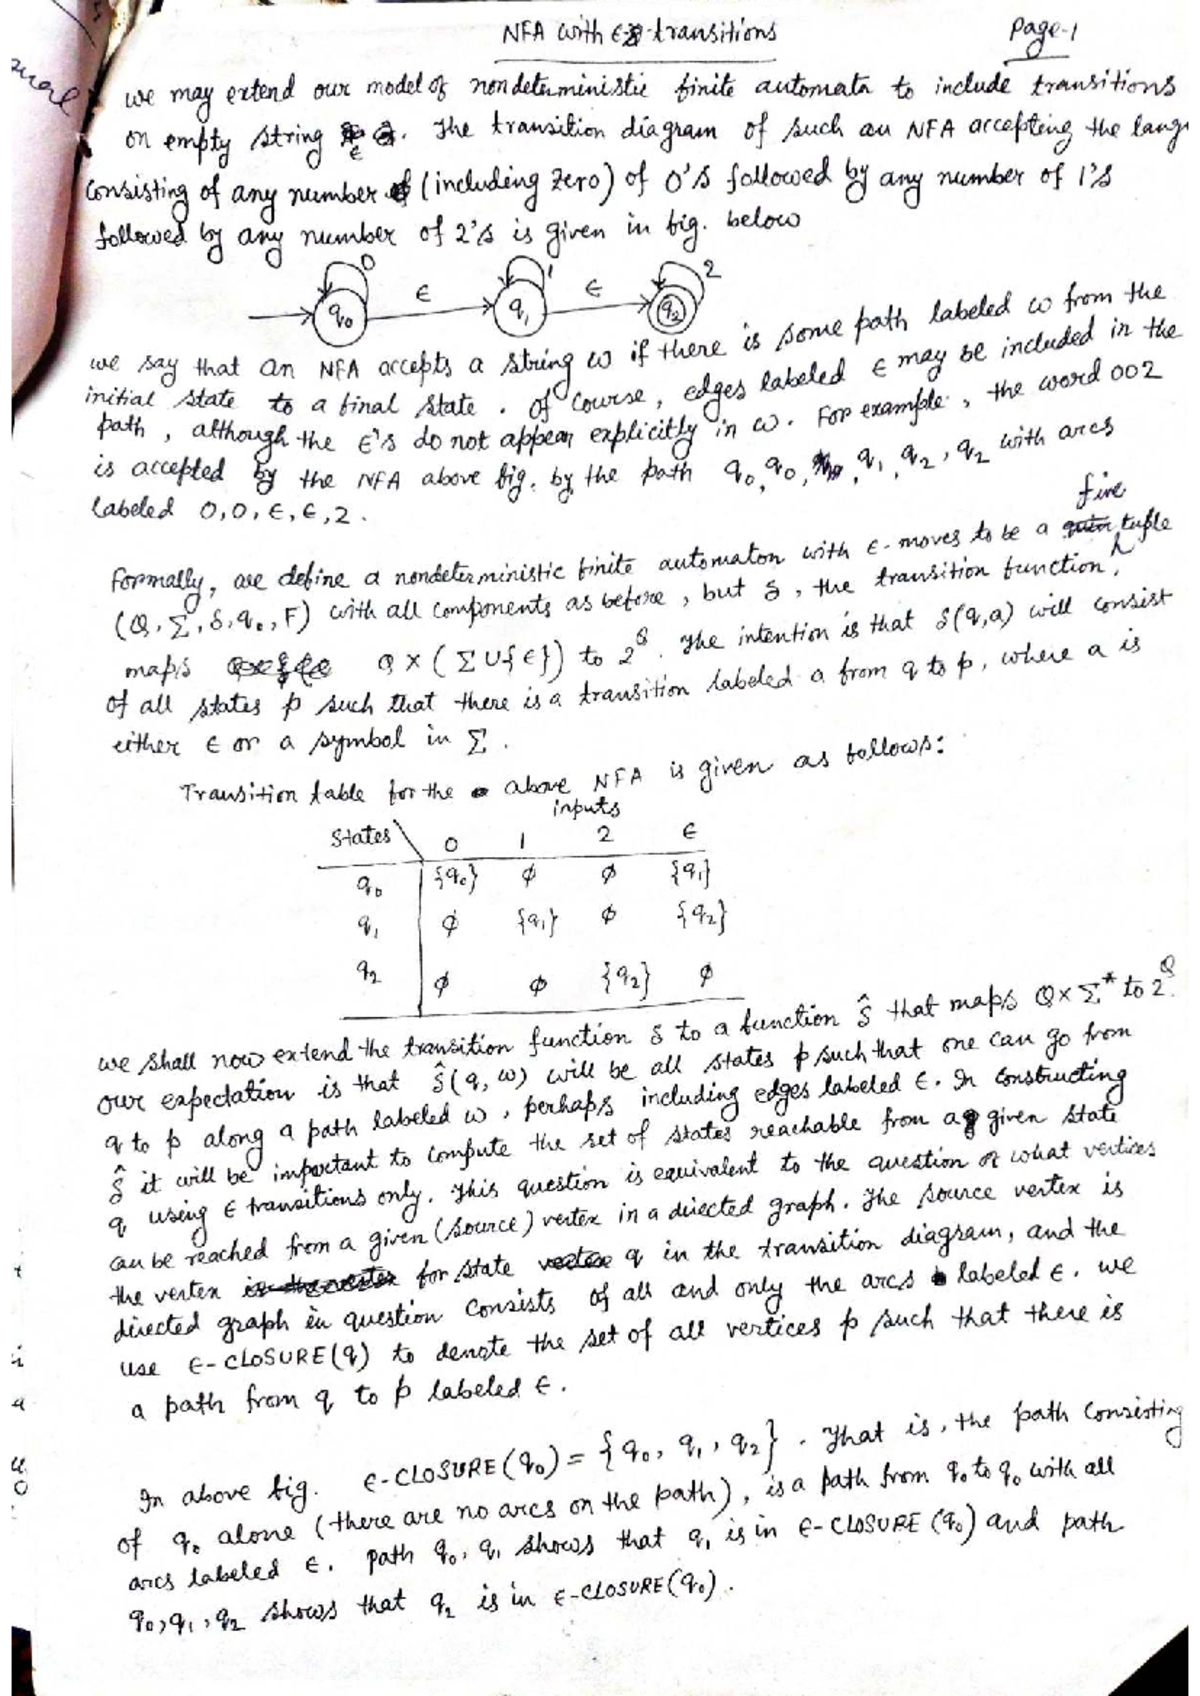 NFA with ϵ-transitions
Page-1
we may extend our model of nondeterministic finite automata to include transitions
on empty string ϵ. The transition diagram of such an NFA accepting the lang
consisting of any number (including zero) of 0's followed by any number of 1's
followed by any number of 2's is given in fig. below
0 1 2
q0 ϵ q1 ϵ q2
we say that an NFA accepts a string w if there is some path labeled w from the
initial state to a final state. Of course, edges labeled ϵ may be included in the
path, although the ϵ's do not appear explicitly in w. For example, the word 002
is accepted by the NFA above fig. by the path q0, q0, q1, q2, q2 with arcs
labeled 0,0,ϵ,ϵ,2.
five
Formally, we define a nondeterministic finite automaton with ϵ-moves to be a tuple
(Q, Σ, δ, q0, F) with all components as before, but δ, the transition function,
maps Q × (Σ ∪ {ϵ}) to 2^Q. The intention is that δ(q,a) will consist
of all states p such that there is a transition labeled a from q to p, where a is
either ϵ or a symbol in Σ.
Transition table for the above NFA is given as follows:
inputs
States 0 1 2 ϵ
q0 {q0} ϕ ϕ {q1}
q1 ϕ {q1} ϕ {q2}
q2 ϕ ϕ {q2} ϕ
we shall now extend the transition function δ to a function δ̂ that maps Q × Σ* to 2^Q.
our expectation is that δ̂(q, w) will be all states p such that one can go from
q to p along a path labeled w, perhaps including edges labeled ϵ. In constructing
δ̂ it will be important to compute the set of states reachable from a given state
q using ϵ transitions only. This question is equivalent to the question of what vertices
can be reached from a given (source) vertex in a directed graph. The source vertex is
the vertex for state q in the transition diagram, and the
directed graph in question consists of all and only the arcs labeled ϵ. we
use ϵ-CLOSURE(q) to denote the set of all vertices p such that there is
a path from q to p labeled ϵ.
In above fig. ϵ-CLOSURE(q0) = {q0, q1, q2}. That is, the path consisting
of q0 alone (there are no arcs on the path), is a path from q0 to q0 with all
arcs labeled ϵ. path q0, q1 shows that q1 is in ϵ-CLOSURE(q0) and path
q0, q1, q2 shows that q2 is in ϵ-CLOSURE(q0).